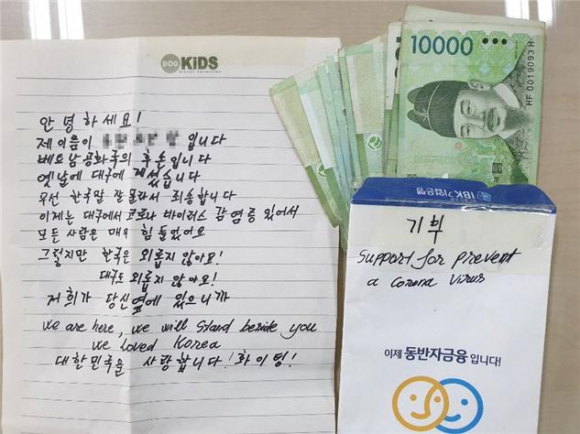 poo KiDS
안녕하세요!
제 이름이 입니다
베트남 공화국의 후손입니다
옛날에 대구에 계셨습니다
우선 한국말 잘 몰라서 죄송합니다
이제는 대구에서 코로나 바이러스 감염증 있어서
모든 사람은 매우 힘들었어요
그렇지만 한국은 외롭지 않아요!
대구도 외롭지 않아요!
저희가 당신옆에 있으니까
we are here, we will stand beside you
we loved Korea
대한민국을 사랑합니다! 화이팅!
10000
HF 0019093 H
IBK기업은행
기부
Support for prevent
a corona virus
이제 동반자금융입니다!